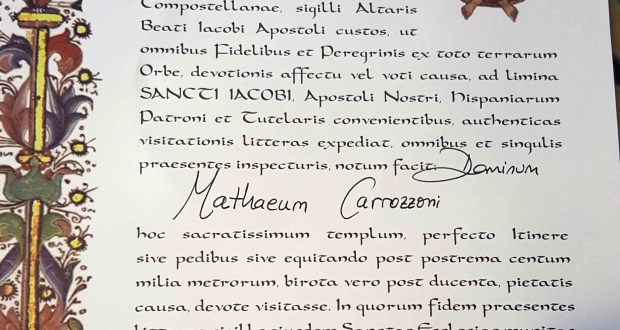 Compostellanae, sigilli Altaris
Beati Iacobi Apostoli custos, ut
omnibus Fidelibus et Peregrinis ex toto terrarum
Orbe, devotionis affectu vel voti causa, ad limina
SANCTI IACOBI, Apostoli Nostri, Hispaniarum
Patroni et Tutelaris convenientibus, authenticas
visitationis litteras expediat, omnibus et singulis
praesentes inspecturis, notum facit: Dominum
Mathaeum Carrozzoni
hoc sacratissimum templum, perfecto Itinere
sive pedibus sive equitando post postrema centum
milia metrorum, birota vero post ducenta, pietatis
causa, devote visitasse. In quorum fidem praesentes